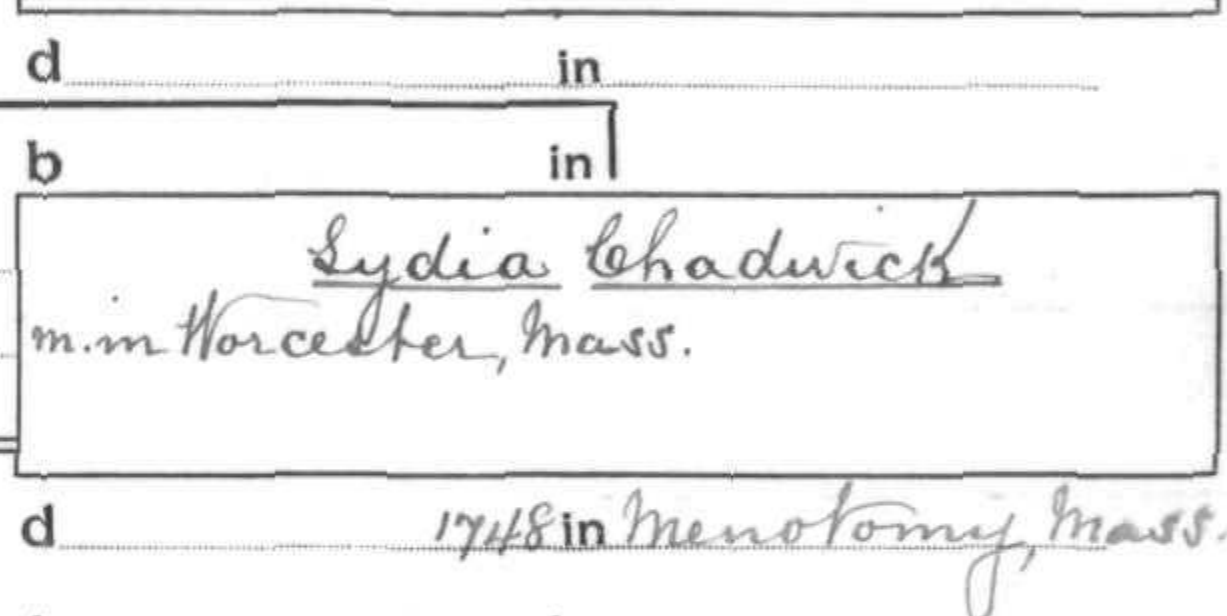 d in
b in
Lydia Chadwick
m. in Worcester, Mass.
d 1748 in Menotomy, Mass.